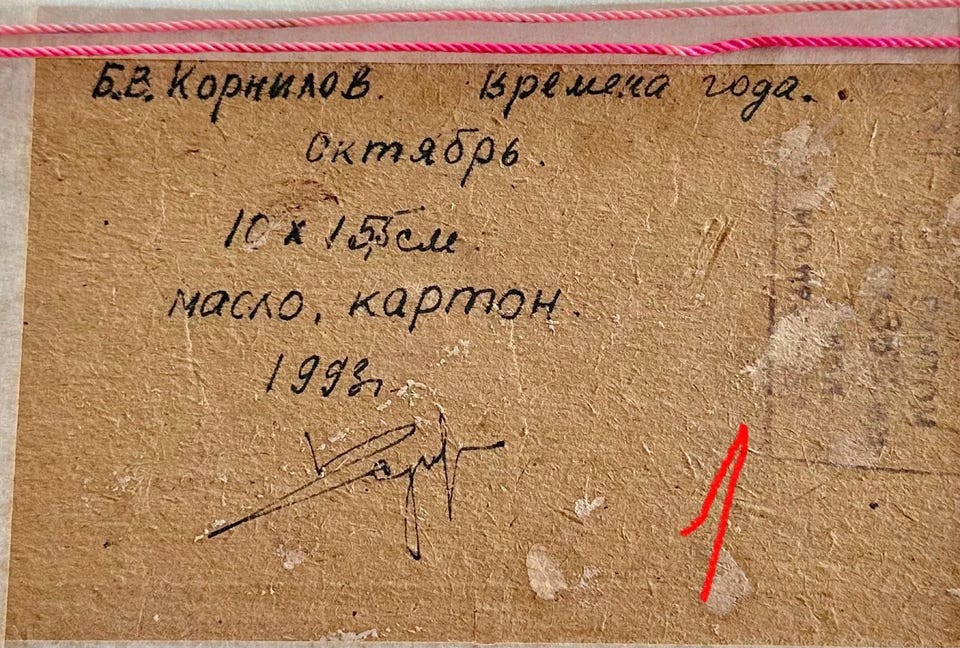 Б.В. Корнилов. Времена года.
Октябрь.
10 х 15,5 см.
масло, картон.
1993г.
1